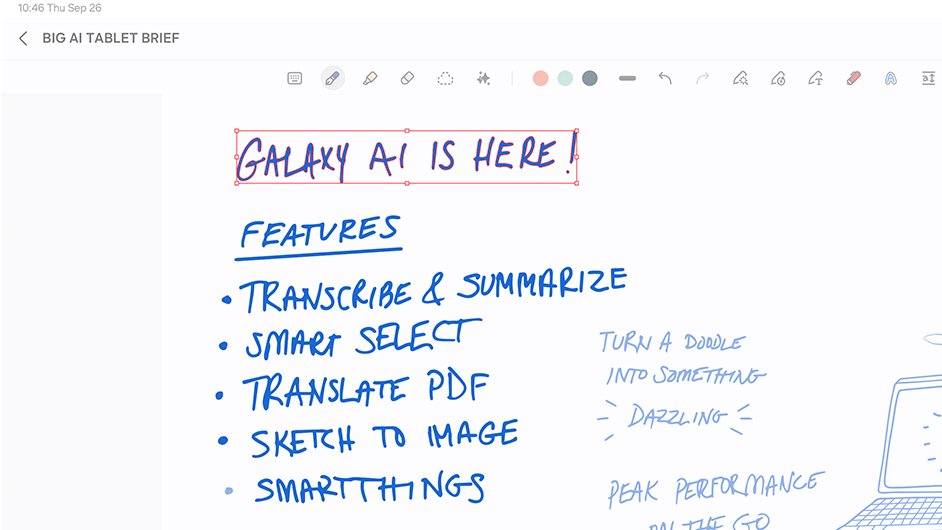 10:46 Thu Sep 26
BIG AI TABLET BRIEF
GALAXY AI IS HERE!
FEATURES
• TRANSCRIBE & SUMMARIZE
• SMART SELECT
• TRANSLATE PDF
• SKETCH TO IMAGE
• SMARTTHINGS
TURN A DOODLE
INTO SOMETHING
DAZZLING
PEAK PERFORMANCE
ON THE GO